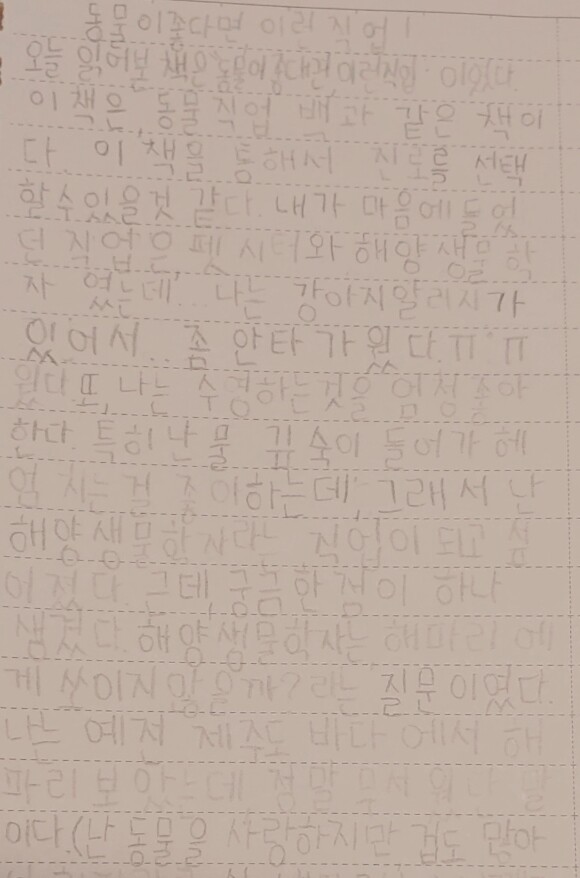 동물이좋다면, 이런 직업!
오늘 읽어본 책은, 동물이좋다면, 이런직업 이었다.
이 책은, 동물 직업 백과 같은 책이
다. 이 책을 통해서 진로를 선택
할 수 있을것 같다. 내가 마음에 들었
던 직업은, 펫 시터와 해양 생물 학
자 였는데... 나는 강아지알러지가
있어서.. 좀 안타가웠다.ㅠ.ㅠ
웠다 또, 나는 수영하는것을 엄청좋아
한다. 특히 난 물 깊숙이 들어가 헤
엄 치는걸 좋아하는데, 그래서 난
해양생물학자라는 직업이 되고 싶
어졌다. 근데, 궁금한 점이 하나
생겼다. 해양생물학자는, 해파리에
게 쏘이지 않을까? 라는 질문이였다.
나는 예전 제주도 바다에서 해
파리 보았는데, 정말 무서웠단 말
이다.(난 동물을 사랑하지만, 겁도 많아